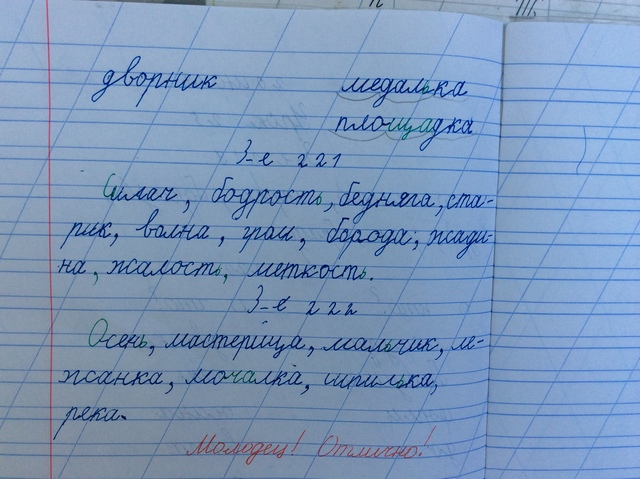 дворник медалька
площадка
З-е 221
Силач, бодрость, бедняга, ста-
рик, волна, гром, борода, жади-
на, жалость, меткость.
З-е 222
Осень, мастерица, мальчик, ле-
жанка, мочалка, шпилька,
река.
Молодец! Отлично!